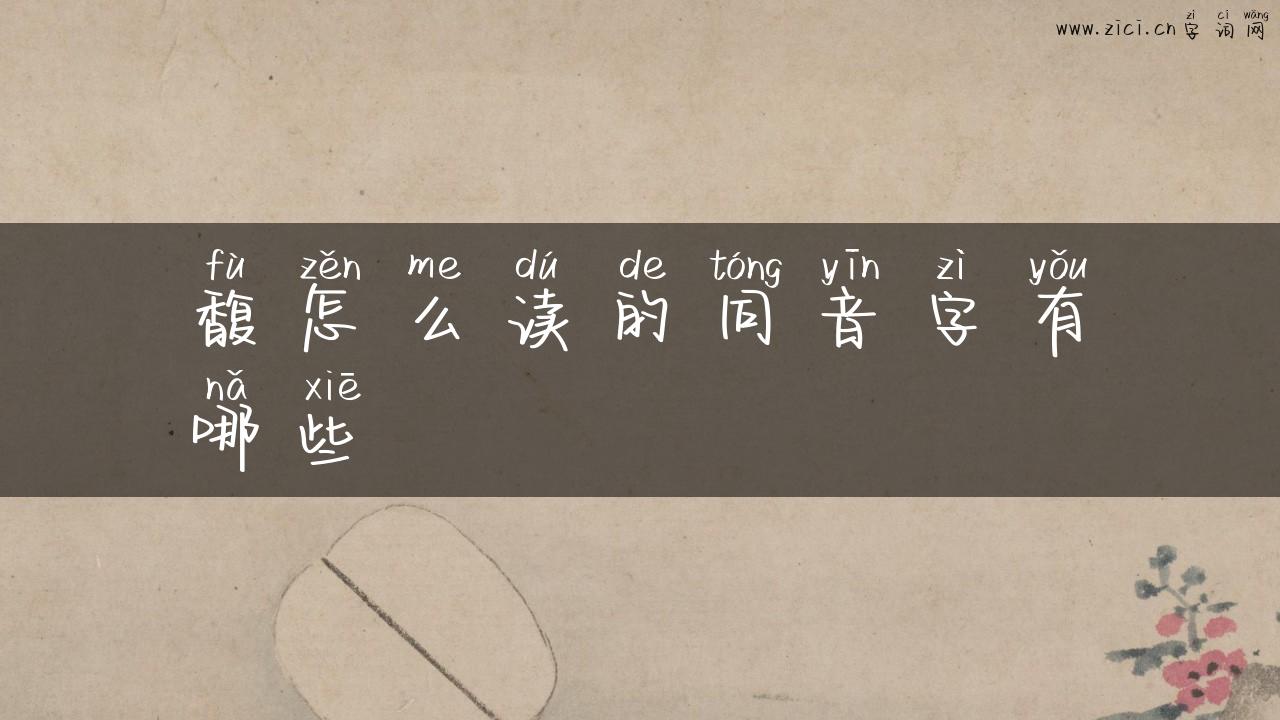 zì cí wǎng
www.zici.cn字词网
fù zěn me dú de tóng yīn zì yǒu
馥怎么读的同音字有
nǎ xiē
哪些